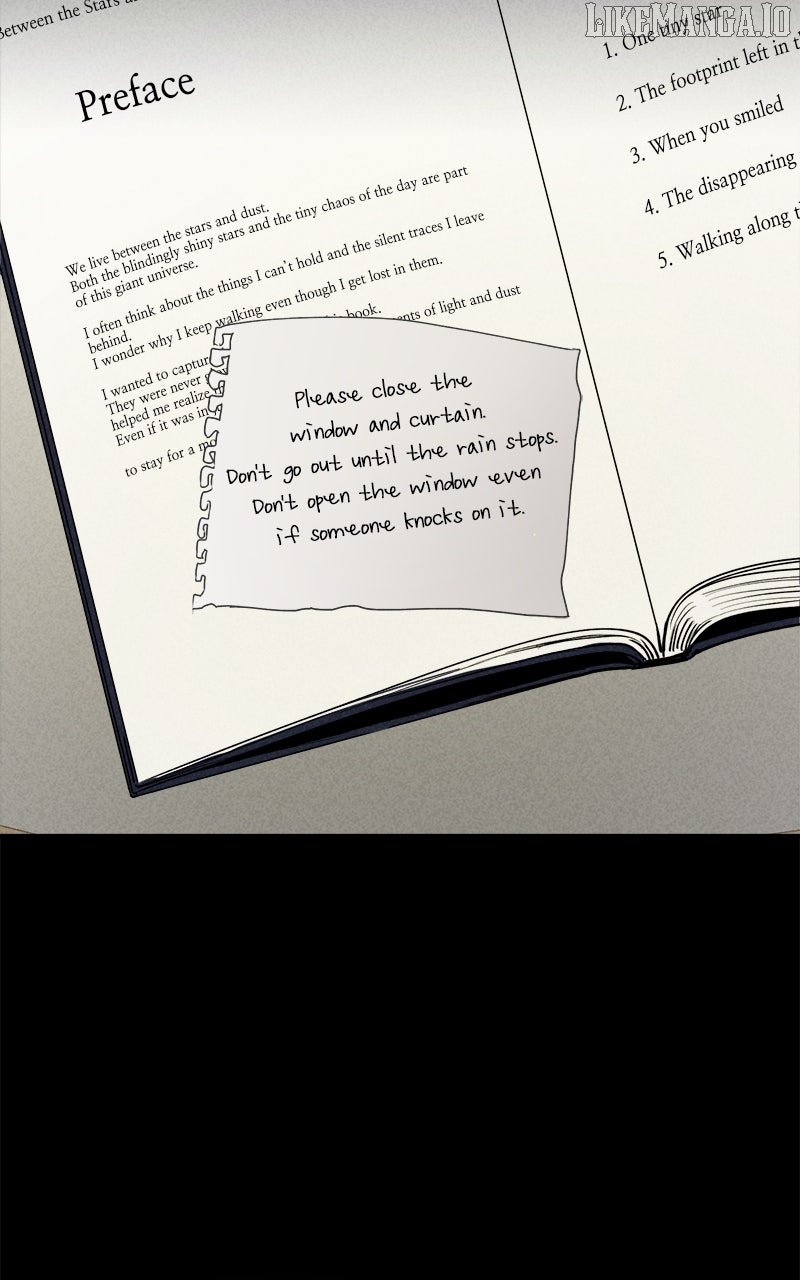 Between the Stars
LIKEMANGA.IO
Preface
We live between the stars and dust.
Both the blindingly shiny stars and the tiny chaos of the day are part
of this giant universe.
I often think about the things I can't hold and the silent traces I leave
behind.
I wonder why I keep walking even though I get lost in them.
I wanted to captur
book.
ents of light and dust
They were never
helped me realize
Even if it was in
to stay for a mo
Please close the
window and curtain.
Don't go out until the rain stops.
Don't open the window even
if someone knocks on it.
1. One tiny star
2. The footprint left in t
3. When you smiled
4. The disappearing
5. Walking along t